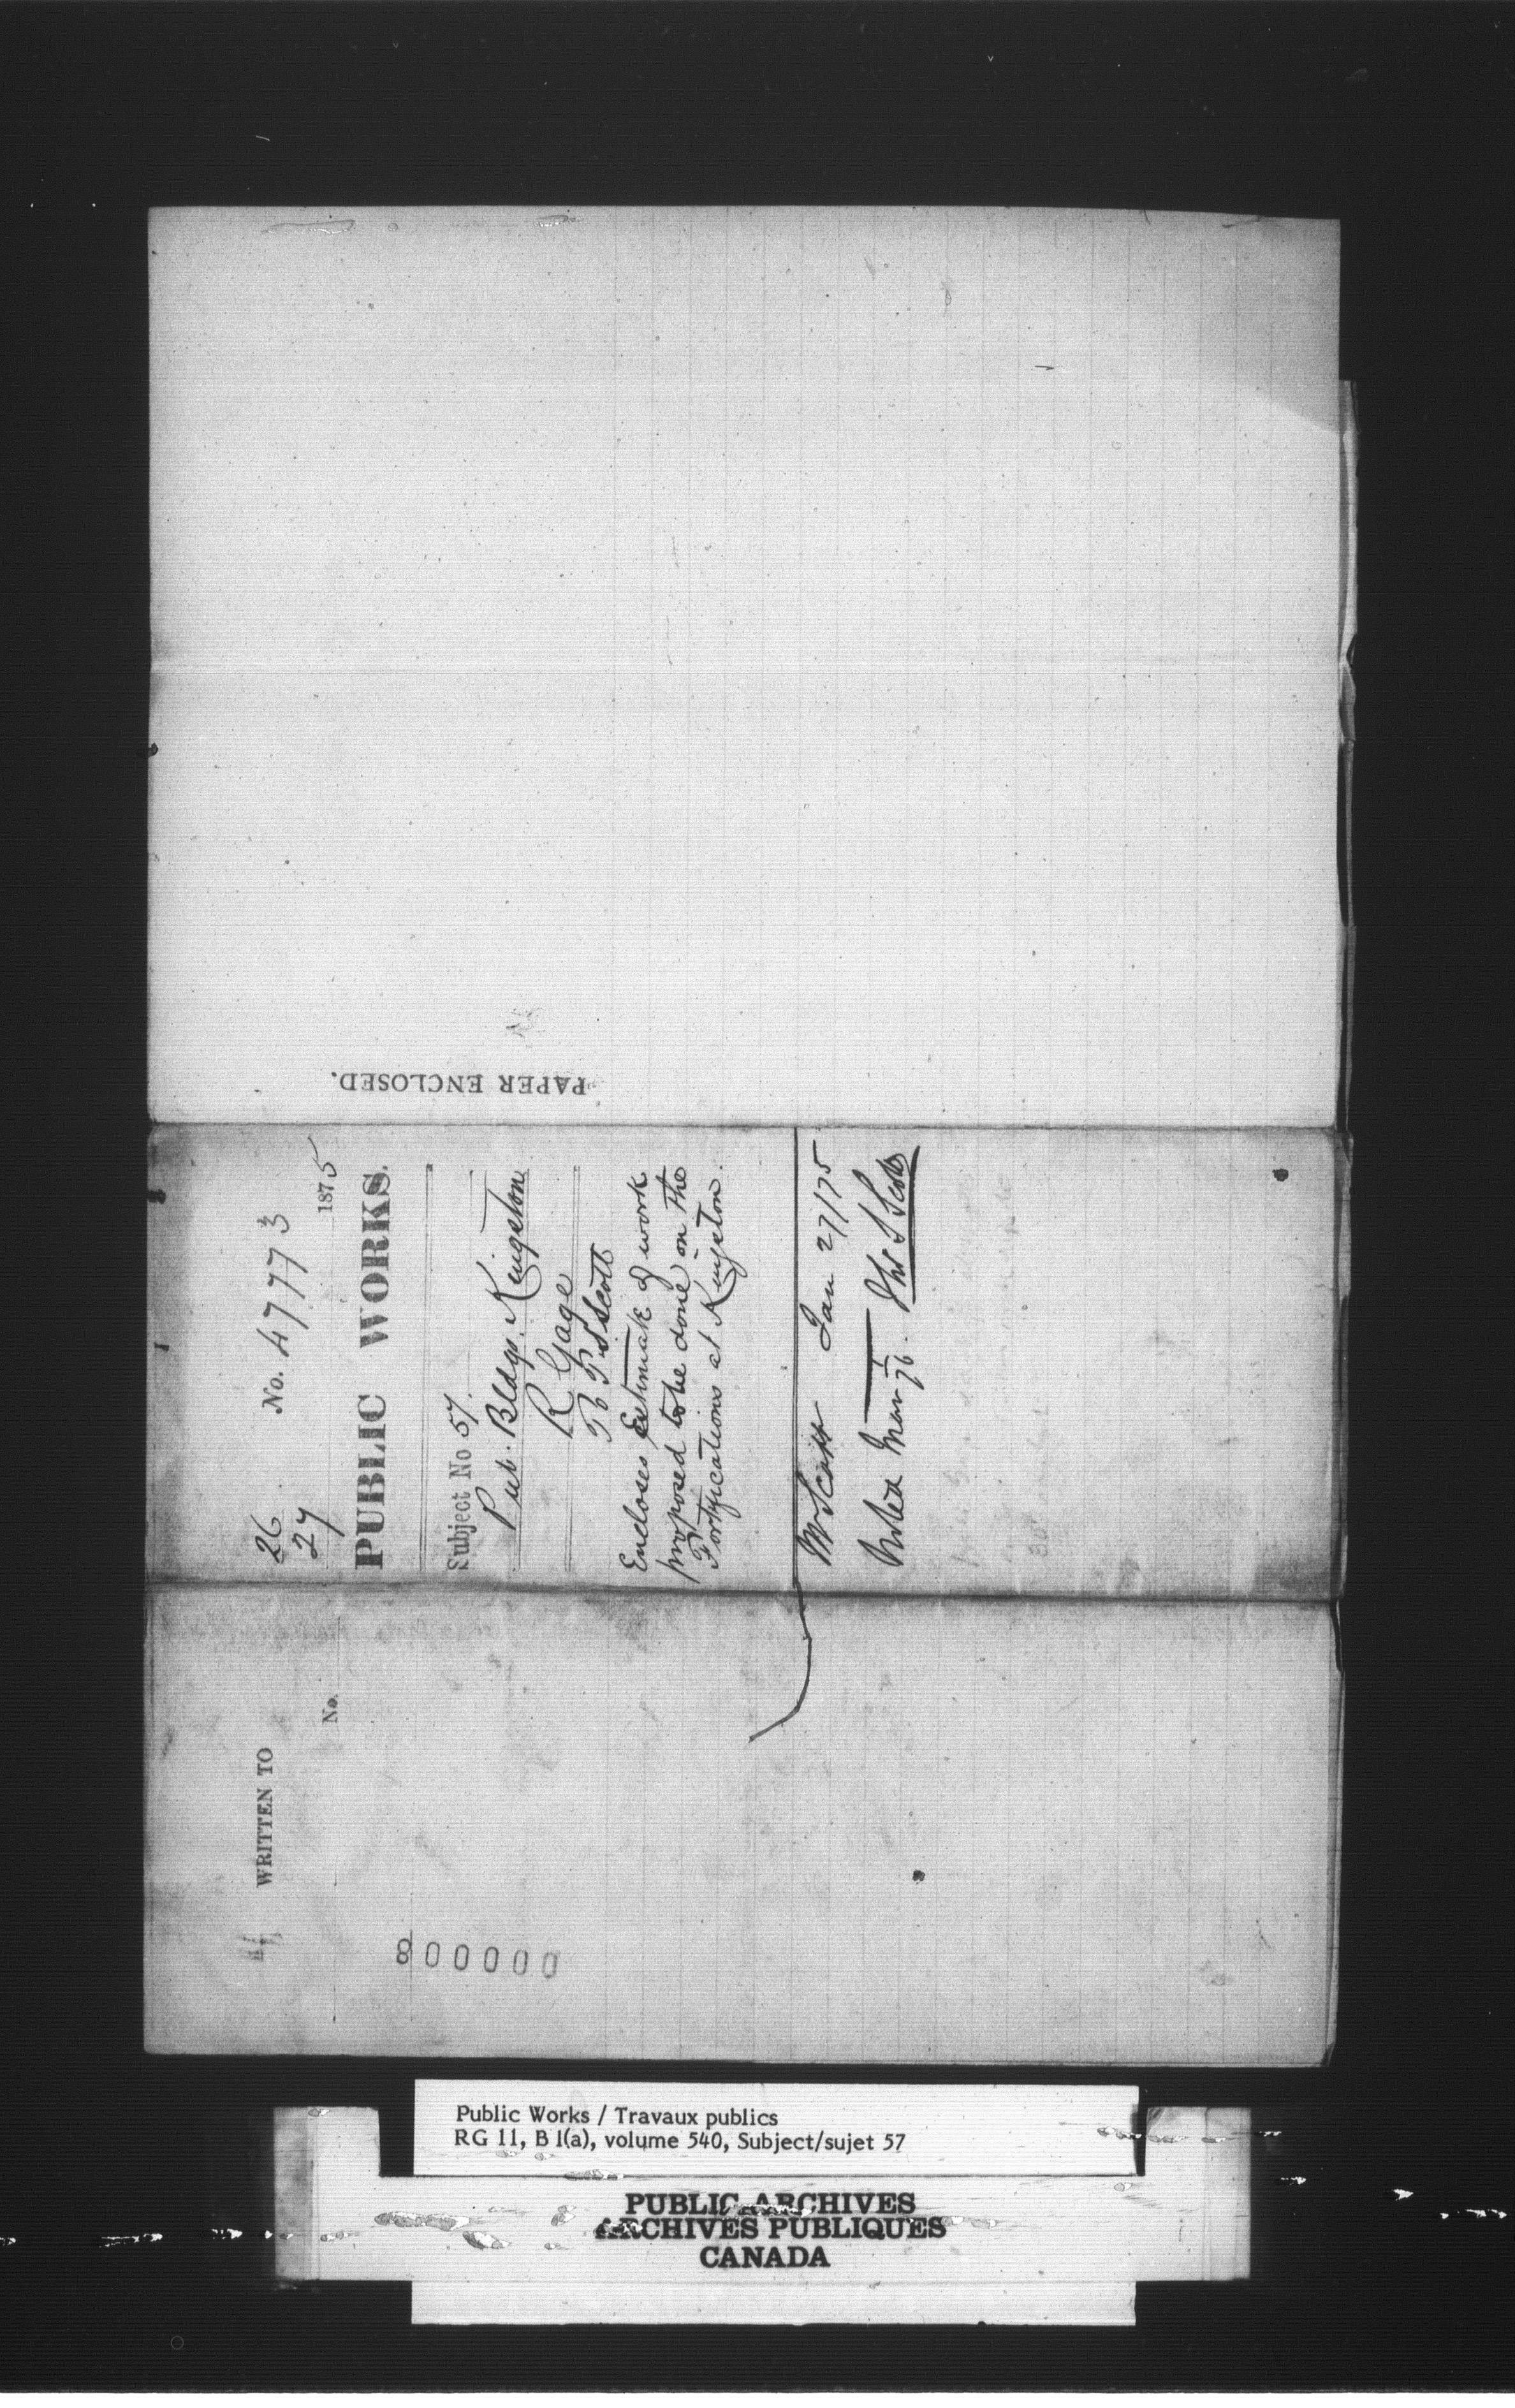 PAPER ENCLOSED.
26 No. 47773
27 1875
PUBLIC WORKS.
Subject No 57.
Pub. Bldgs. Kingston
R Gage
To T S Scott
Encloses Estimate of work
proposed to be done on the
Fortifications at Kingston.
Mr Scott Jan 27/75
Noted Mar 1/76. Thos S Scott
WRITTEN TO
No.
800000
Public Works / Travaux publics
RG 11, B 1(a), volume 540, Subject/sujet 57
PUBLIC ARCHIVES
ARCHIVES PUBLIQUES
CANADA